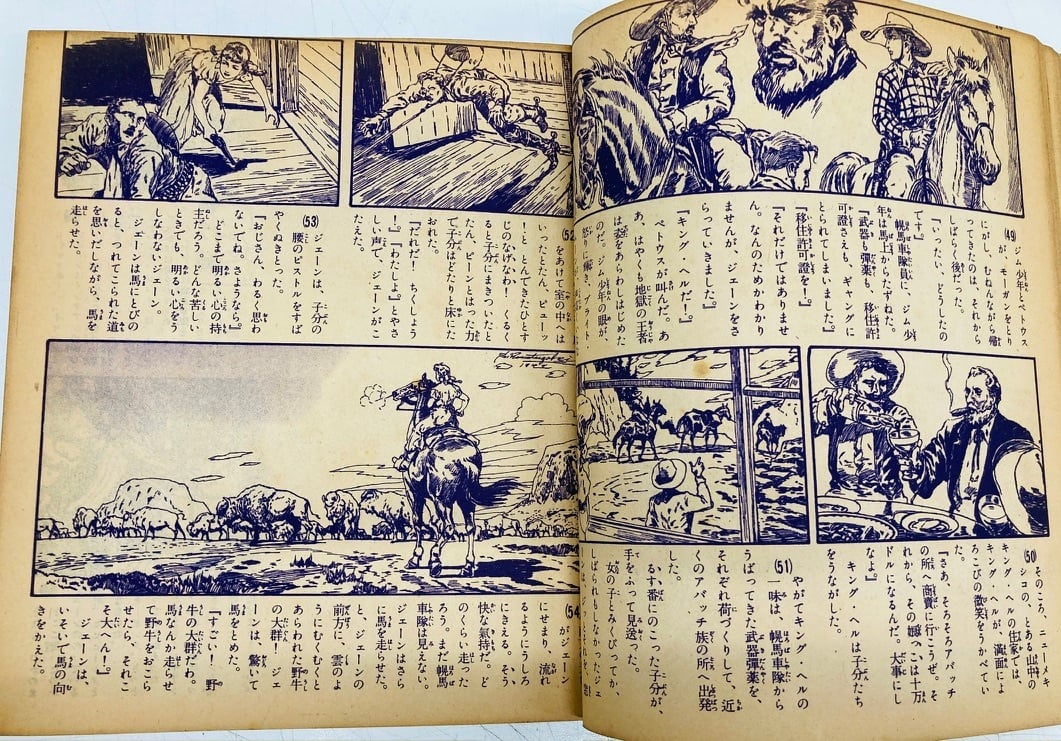 (49)
ジム少年とベトウス
が、モーガンをとり
にがし、むねんながら帰
ってきたのは、それから
しばらく後だった。
「いったい、どうしたの
です。」
幌馬車隊員に、ジム少
年は馬上からたずねた。
「武器も彈薬も、移住許
可證さえも、ギャングに
とられてしまいました。」
「移住許可證を!。」
「それだけではありませ
ん。なんのためかわかり
ませんが、ジェーンをさ
らっていきました。」
「キング・ヘルだ!。」
ベトウスが叫んだ。あ
あ、はやくも地獄の王者
は姿をあらわしはじめた
のだ。ジム少年の眼が、
怒りに輝き、ブライト
(50)
そのころ、ニューメキ
シコの、とある山中の
キング・ヘルの住家では、
キング・ヘルが、満面によ
ろこびの微笑をうかべてい
た。
「さあ、そろそろアパッチ
の所へ商賣に行こうぜ。そ
れから、その娘っこは十万
ドルになるんだ。大事にし
なよ。」
キング・ヘルは子分たち
をうながした。
(51)
やがてキング・ヘルの
一味は、幌馬車隊から
うばってきた武器彈薬を、
それぞれ荷づくりして、近
くのアパッチ族の所へ出発
した。
るす番にのこった子分が、
手をふって見送った。
女の子とみくびってか、
しばられもしなかったジェ
(52)
をあけて室の中へは
いったとたん、ピューッ
!ととんできたひとす
じのなげなわ!くるく
ると子分にまきついたと
たん、ピーンとはった力
で子分はどたりと床にた
おれた。
「だれだ!ちくしょう
!。」「わたしよ。」とやさ
しい声で、ジェーンがこ
(53)
ジェーンは、子分の
腰のピストルをすば
やくぬきとった。
「おじさん、わるく思わ
ないでね。さようなら。」
どこまで明るい心の持
主だろう。どんな苦しい
ときでも、明るい心をう
しなわないジェーン。
ジェーンは馬にとびの
ると、つれてこられた道
を思いだしながら、馬を
走らせた。
(54)
がジェーン
にせまり、流れ
るようにうしろ
にきえる。そう
快な氣持だ。ど
のくらい走った
ろう。まだ幌馬
車隊は見えない。
ジェーンはさら
に馬を走らせた。
と、とつぜん、
前方に、雲のよ
うにむくむくと
あらわれた野牛
の大群!ジェ
ーンは、驚いて
馬をとめた。
「すごい!野
牛の大群だわ。
馬なんか走らせ
て野牛をおこら
せたら、それこ
そ大へん!。」
ジェーンは、
いそいで馬の向
きをかえた。